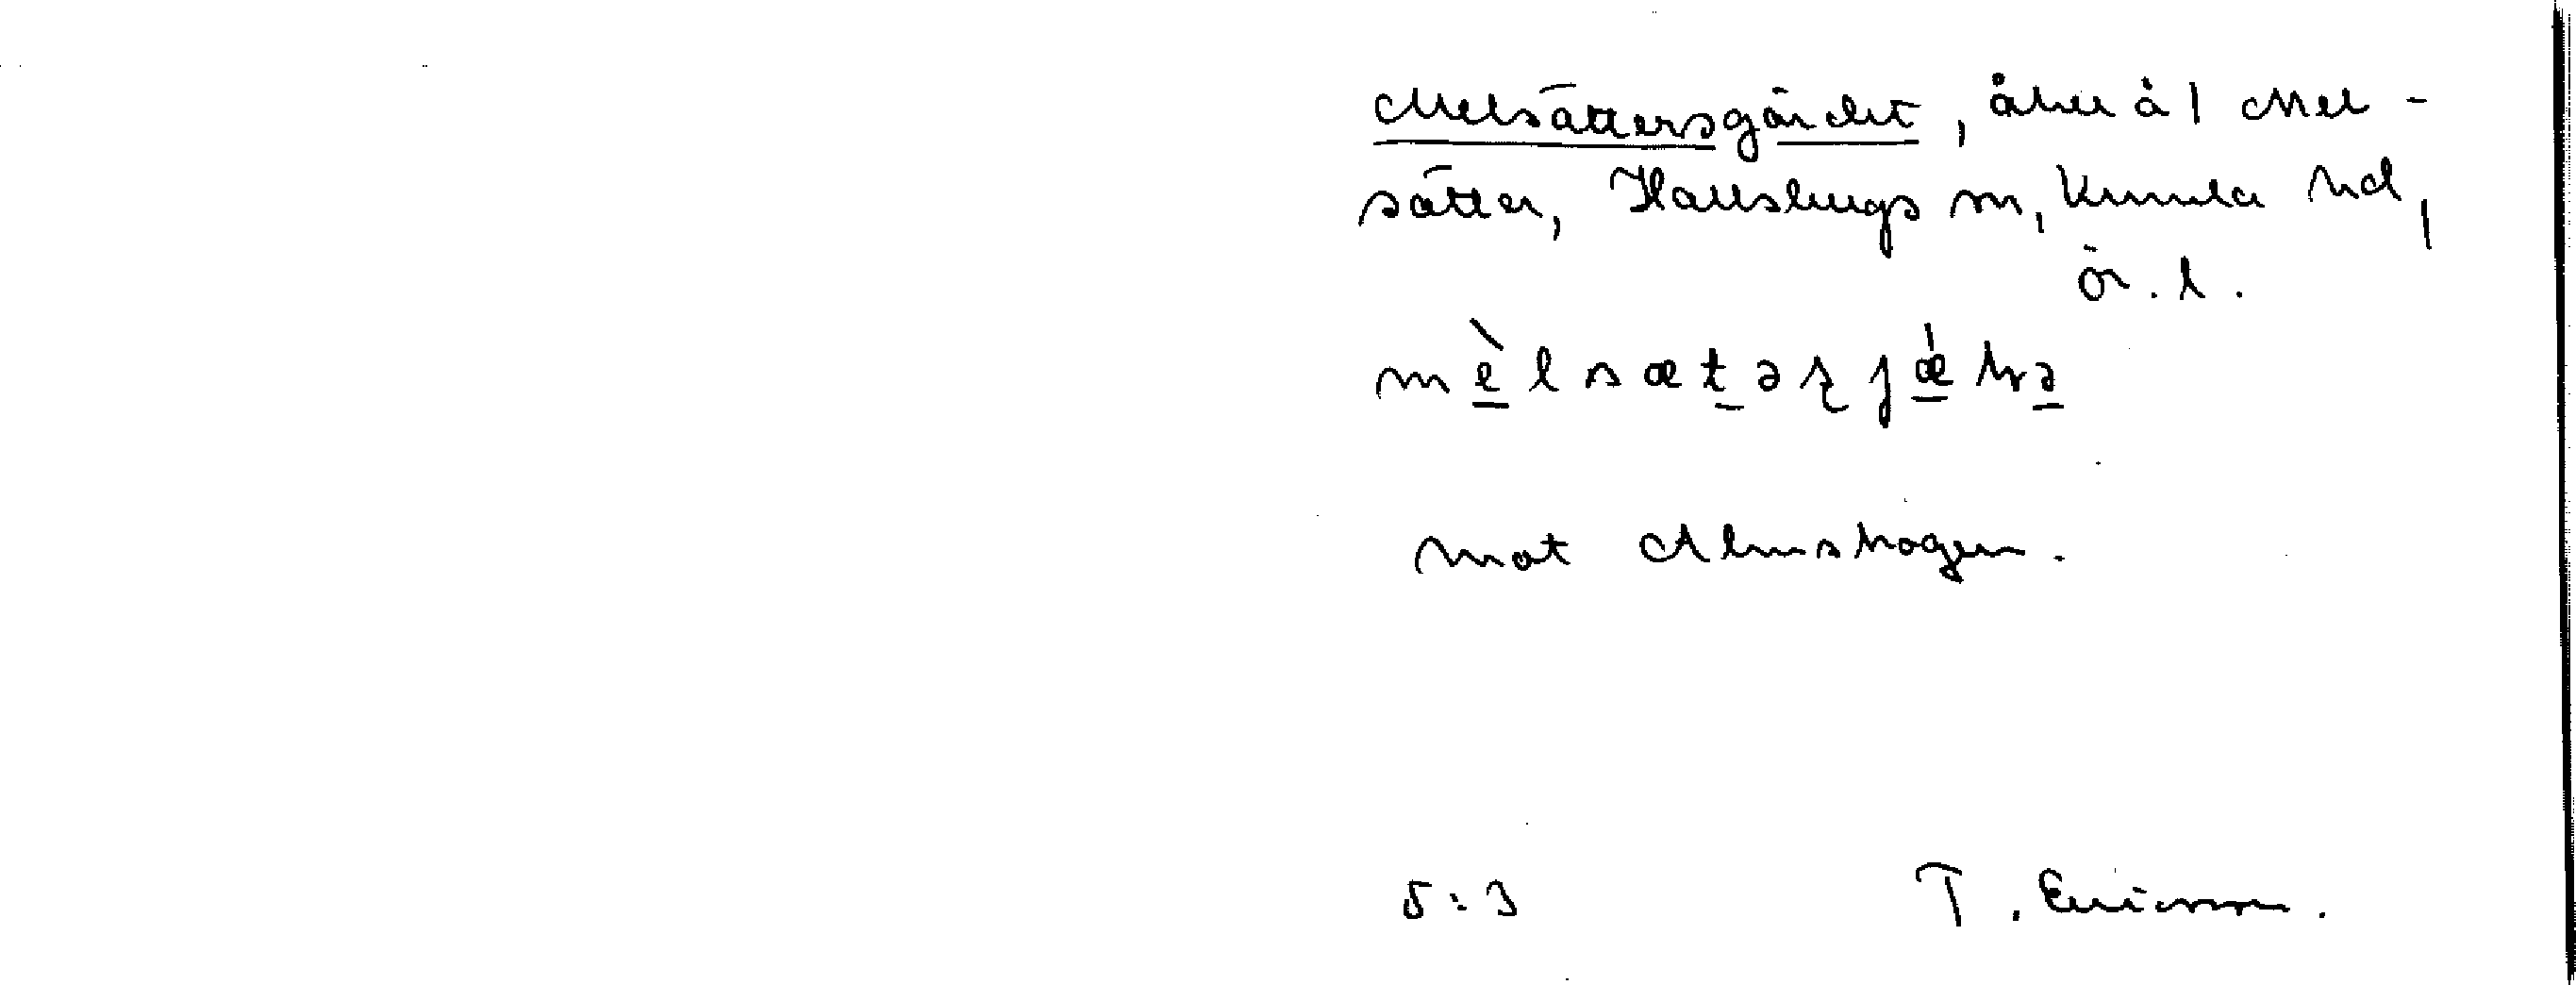 Melsättersgärdet, åker å 1 Mel-
sätter, Hallsbergs sn, Kumla hd,
ör. l.
mèlsætəʂjǽɖə
mot Almskogen.
5:3 T. Ericsson.